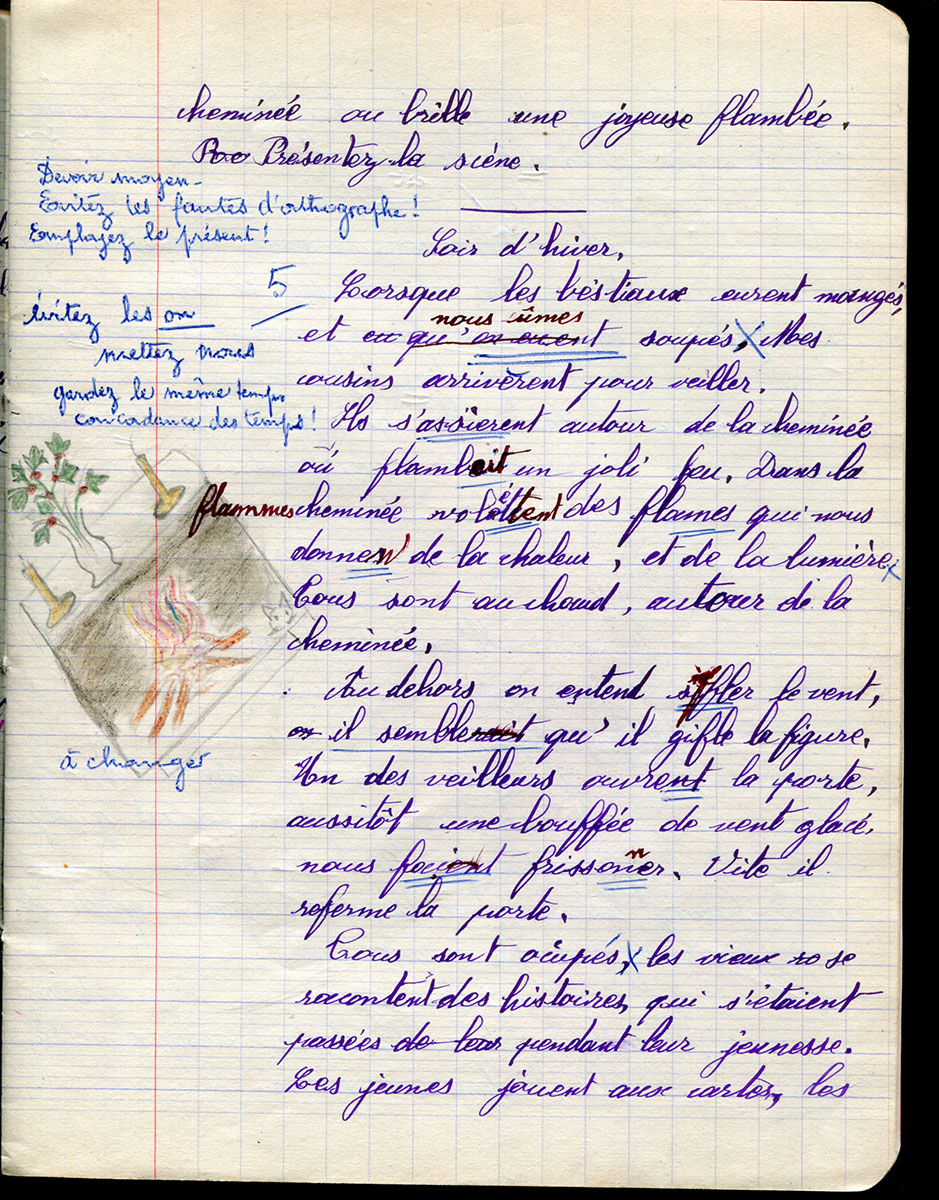 cheminée ou brille une joyeuse flambée.
Présentez-la scéne.
Devoir moyen -
Evitez les fautes d'orthographe!
Employez le présent!
Soir d'hiver.
5
Lorsque les béstiaux eurent mangés,
évitez les on
nous ûmes
et ou qu'on eurent soupés, Mes
mettez nous
cousins arrivèrent pour veiller.
gardez le même temps
concordance des temps!
Ils s'assïerent autour de la cheminée
où flambait un joli feu. Dans la
flammes
cheminée volettent des flames qui nous
donnent de la chaleur, et de la lumière
Tous sont au chaud, autour de la
cheminée.
Au dehors on entend siffler le vent,
on il semblerait qu'il gifle la figure.
à changer
Un des veilleurs ouvrent la porte,
aussitôt une bouffée de vent glacé,
nous faisant frissonner. Vite il
referme la porte.
Tous sont ocupés, les vieux se
racontent des histoires, qui s'étaient
passées de leur pendant leur jeunesse.
Les jeunes jouent aux cartes, les